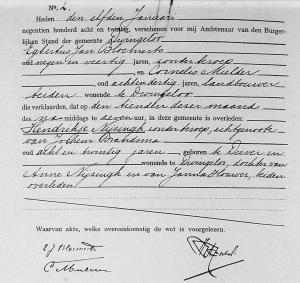 No 2.
Heden den elfden Januari
negentien honderd acht en twintig, verschenen voor mij Ambtenaar van den Burger-
lijken Stand der gemeente Dwingeloo
Egbertus Jan
oud negen en veertig jaren, zonder beroep
en Cornelis Mulder
oud achtendertig jaren, landbouwer
beiden wonende te Dwingeloo
die verklaarden, dat op den tienden dezer maand
des na middags te zeven uur, in deze gemeente is overleden:
Hendrikje Nijsingh, zonder beroep, echtgenoote
van Jochem
oud acht en twintig jaren, geboren te Diever en
wonende te Dwingeloo, dochter van
Arne Nijsingh en van Janna Houwer, beiden
overleden
Waarvan akte, welke overeenkomstig de wet is voorgelezen.
E J
C Mulder